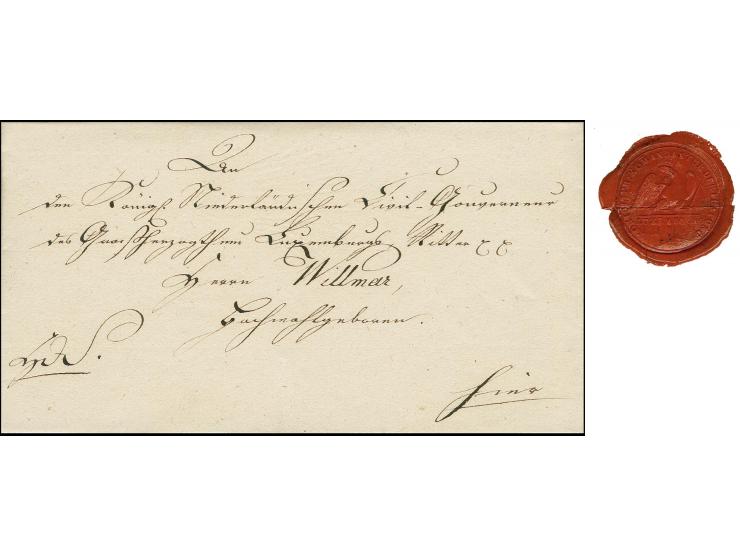 An
den Königl. Niederländischen Civil-Gouverneur
des Grossherzogthums Luxemburg, Ritter pp
Herrn Willmar,
Hochwohlgeboren.
hier